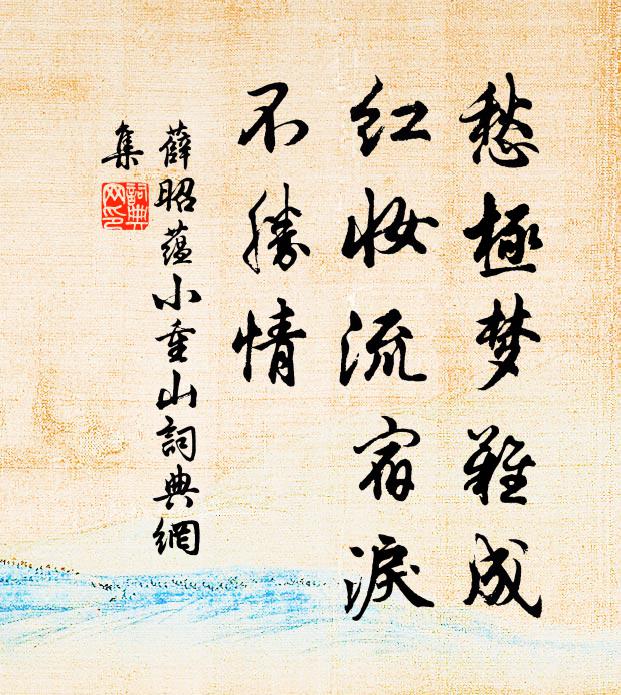 愁極梦難成
红妆流宿淚
不勝情
薛昭蕴小重山詞典網
集
詞典網印